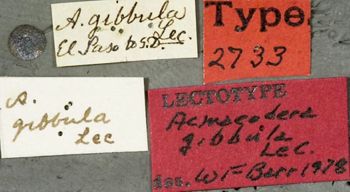 A. gibbula
Lec.
El Paso to S.D.
Type
2733
A.
gibbula
Lec
LECTOTYPE
Acmaeodera
gibbula
Lec.
det. W F Barr 1978